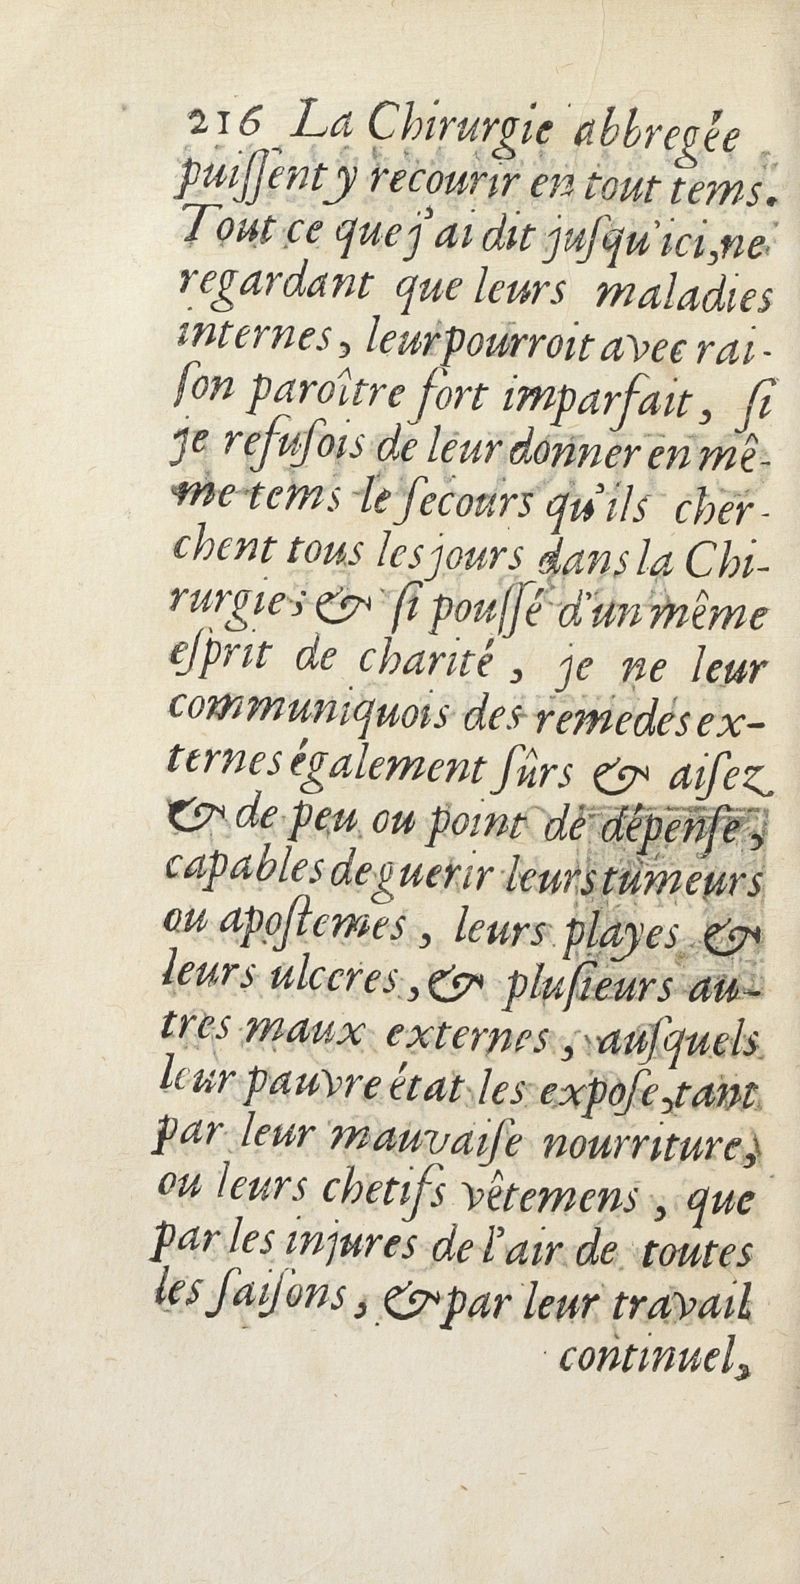 216 La Chirurgie abbregée
puiſſent y recourir en tout tems.
Tout ce que j'ai dit juſqu'ici, ne
regardant que leurs maladies
internes, leur pourroit avec rai-
ſon paroître fort imparfait, ſi
je refuſois de leur donner en mê-
me tems le ſecours qu'ils cher-
chent tous les jours dans la Chi-
rurgie; & ſi pouſſé d'un même
eſprit de charité, je ne leur
communiquois des remedes ex-
ternes également ſûrs & aiſez
& de peu ou point de dépenſe,
capables de guerir leurs tumeurs
ou apoſtemes, leurs playes &
leurs ulceres, & pluſieurs au-
tres maux externes, auſquels
leur pauvre état les expoſe, tant
par leur mauvaiſe nourriture,
ou leurs chetifs vêtemens, que
par les injures de l'air de toutes
les ſaiſons, & par leur travail
continuel,